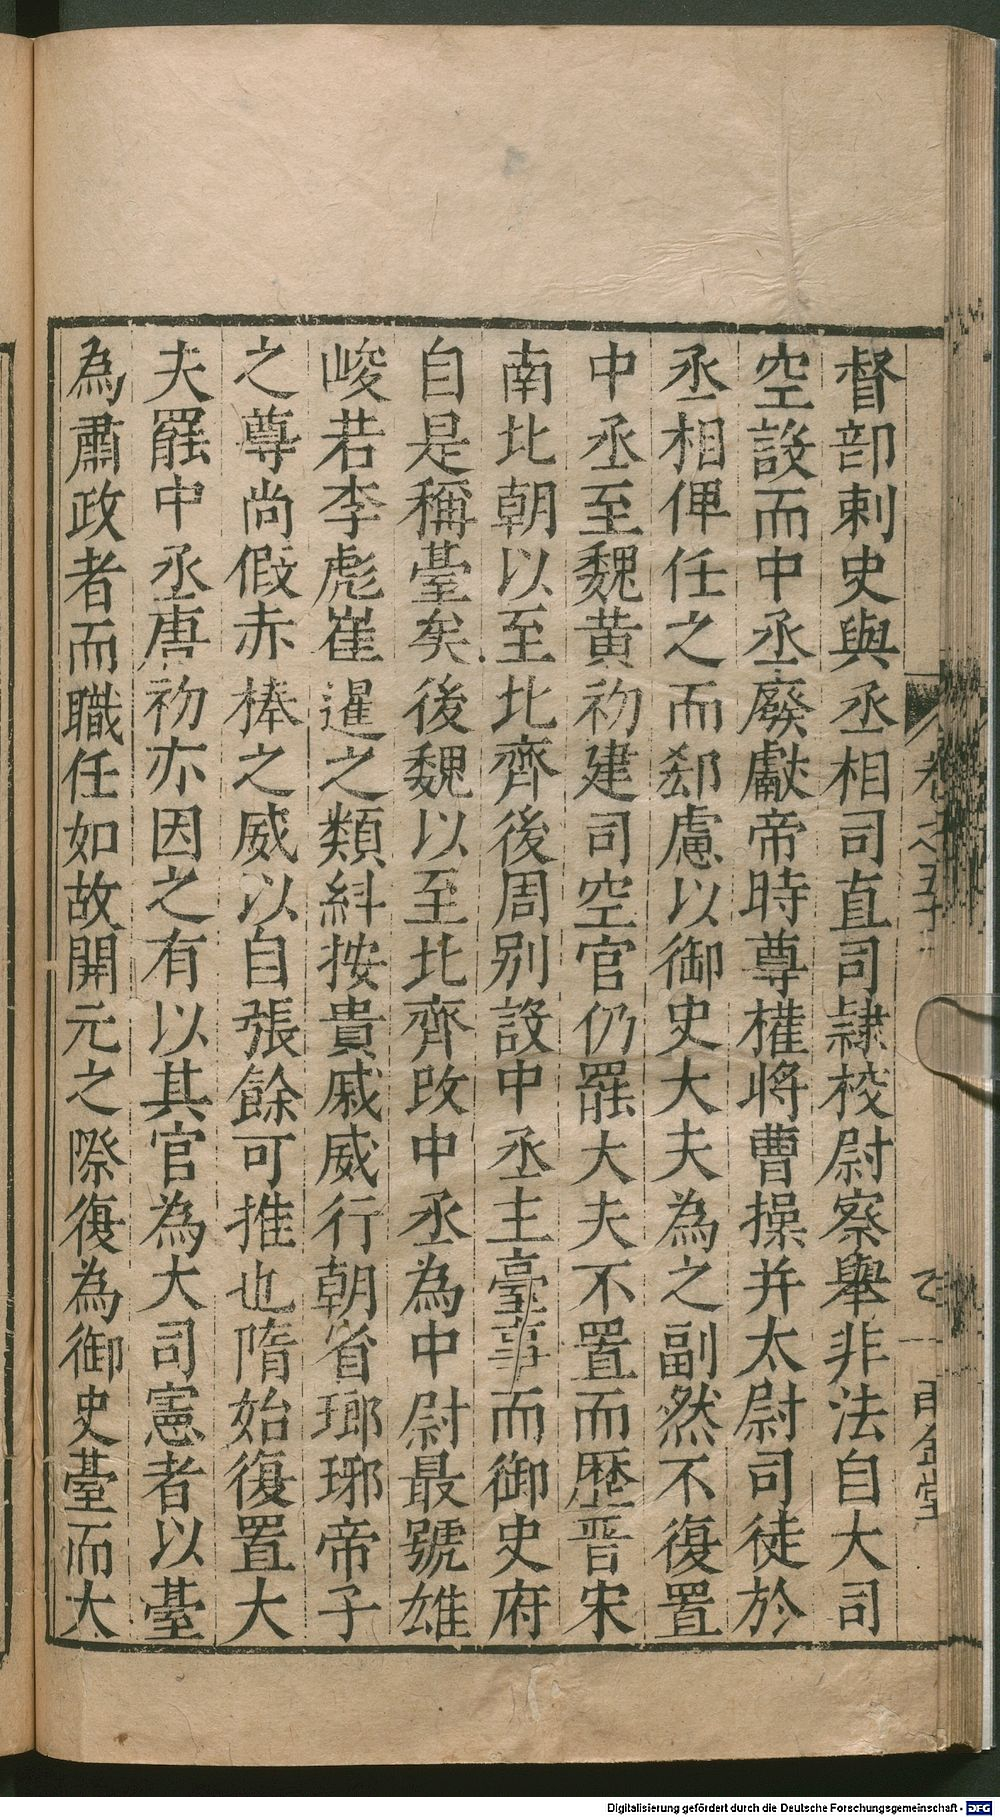 督部刺史與丞相司直司隷校尉察舉非法自大司
空設而中丞廢獻帝時尊權將曹操并太尉司徒於
丞相俾任之而郄慮以御史大夫為之副然不復置
中丞至魏黃初建司空官仍罷大夫不置而歷晉宋
南北朝以至北齊後周別設中丞主臺事而御史府
自是稱臺矣後魏以至北齊改中丞為中尉最號雄
峻若李彪崔暹之類糾按貴戚威行朝省瑯琊帝子
之尊尚假赤棒之威以自張餘可推也隋始復置大
夫罷中丞唐初亦因之有以其官為大司憲者以臺
為肅政者而職任如故開元之際復為御史臺而大
卷之五十
Digitalisierung gefördert durch die Deutsche Forschungsgemeinschaft - DFG